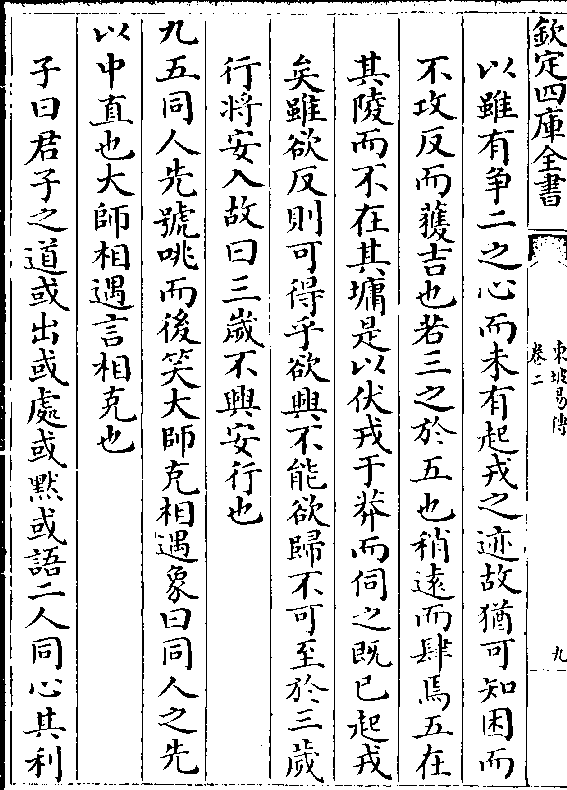 欽定四庫全書
東坡易傳
卷二
九
以雖有争二之心而未有起戎之迹故猶可知困而
不攻反而獲吉也若三之於五也稍逺而肆焉五在
其陵而不在其墉是以伏戎于莽而伺之既已起戎
矣雖欲反則可得乎欲興不能欲歸不可至於三歲
行將安入故曰三歲不興安行也
九五同人先號咷而後笑大師克相遇象曰同人之先
以中直也大師相遇言相克也
子曰君子之道或出或處或黙或語二人同心其利